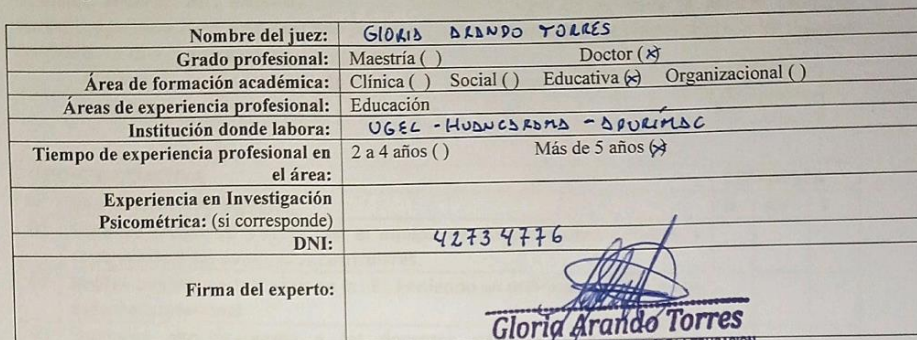 Nombre del juez: GLORIA ARANDO TORRES
Grado profesional: Maestría ( ) Doctor (x)
Área de formación académica: Clínica ( ) Social ( ) Educativa (x) Organizacional ( )
Áreas de experiencia profesional: Educación
Institución donde labora: UGEL - HUANCARAMA - APURÍMAC
Tiempo de experiencia profesional en 2 a 4 años ( ) Más de 5 años (x)
el área:
Experiencia en Investigación
Psicométrica: (si corresponde)
DNI: 42734776
Firma del experto:
Gloria Arando Torres